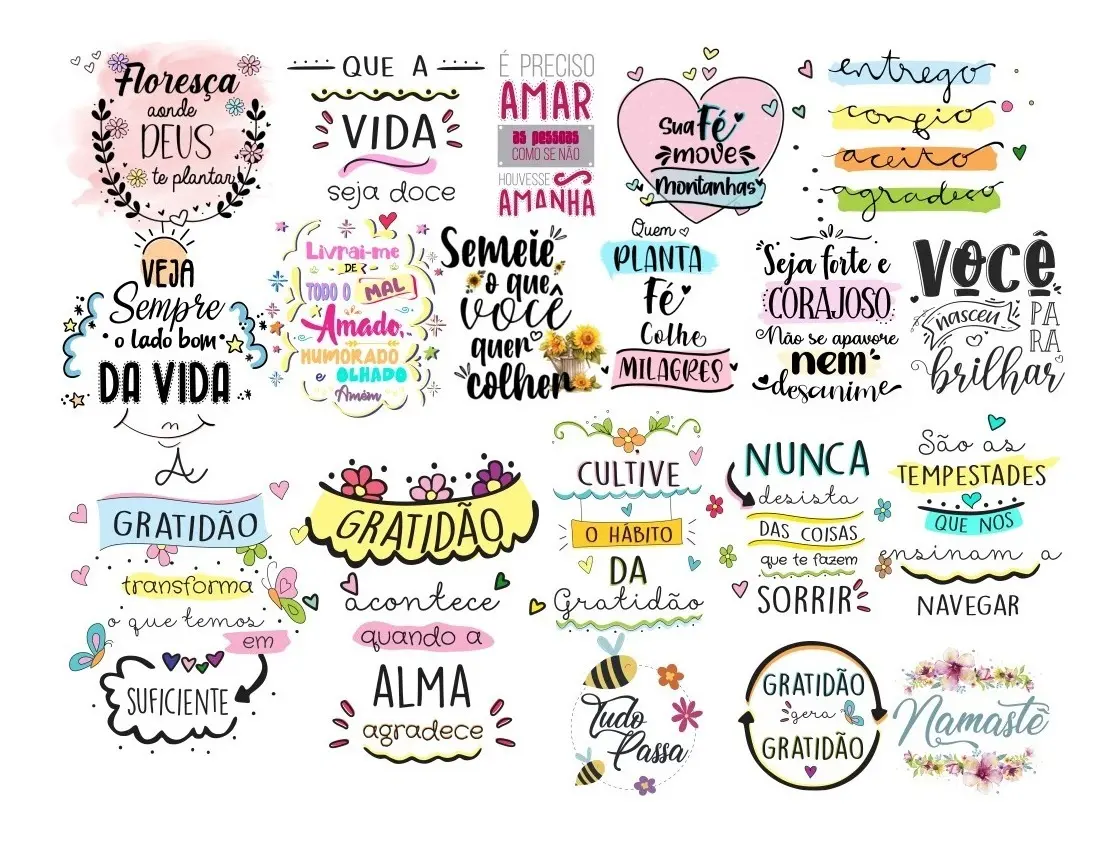 Floresça
aonde
DEUS
te plantar
QUE A
VIDA
seja doce
É PRECISO
AMAR
as pessoas
COMO SE NÃO
HOUVESSE
AMANHÃ
Sua Fé
move
Montanhas
entrego
confio
aceito
agradeço
VEJA
Sempre
o lado bom
DA VIDA
Livrai-me
DE
TODO O MAL
Amado,
HUMORADO
e OLHADO
Amém
Semeie
o que
você
quer
colher
Quem
PLANTA
Fé
Colhe
MILAGRES
Seja forte e
CORAJOSO
Não se apavore
nem
desanime
VOCÊ
nasceu PARA
brilhar
A
GRATIDÃO
transforma
o que temos
em
SUFICIENTE
GRATIDÃO
acontece
quando a
ALMA
agradece
CULTIVE
O HÁBITO
DA
Gratidão
NUNCA
desista
DAS COISAS
que te fazem
SORRIR
São as
TEMPESTADES
QUE NOS
ensinam a
NAVEGAR
Tudo
Passa
GRATIDÃO
gera
GRATIDÃO
Namastê